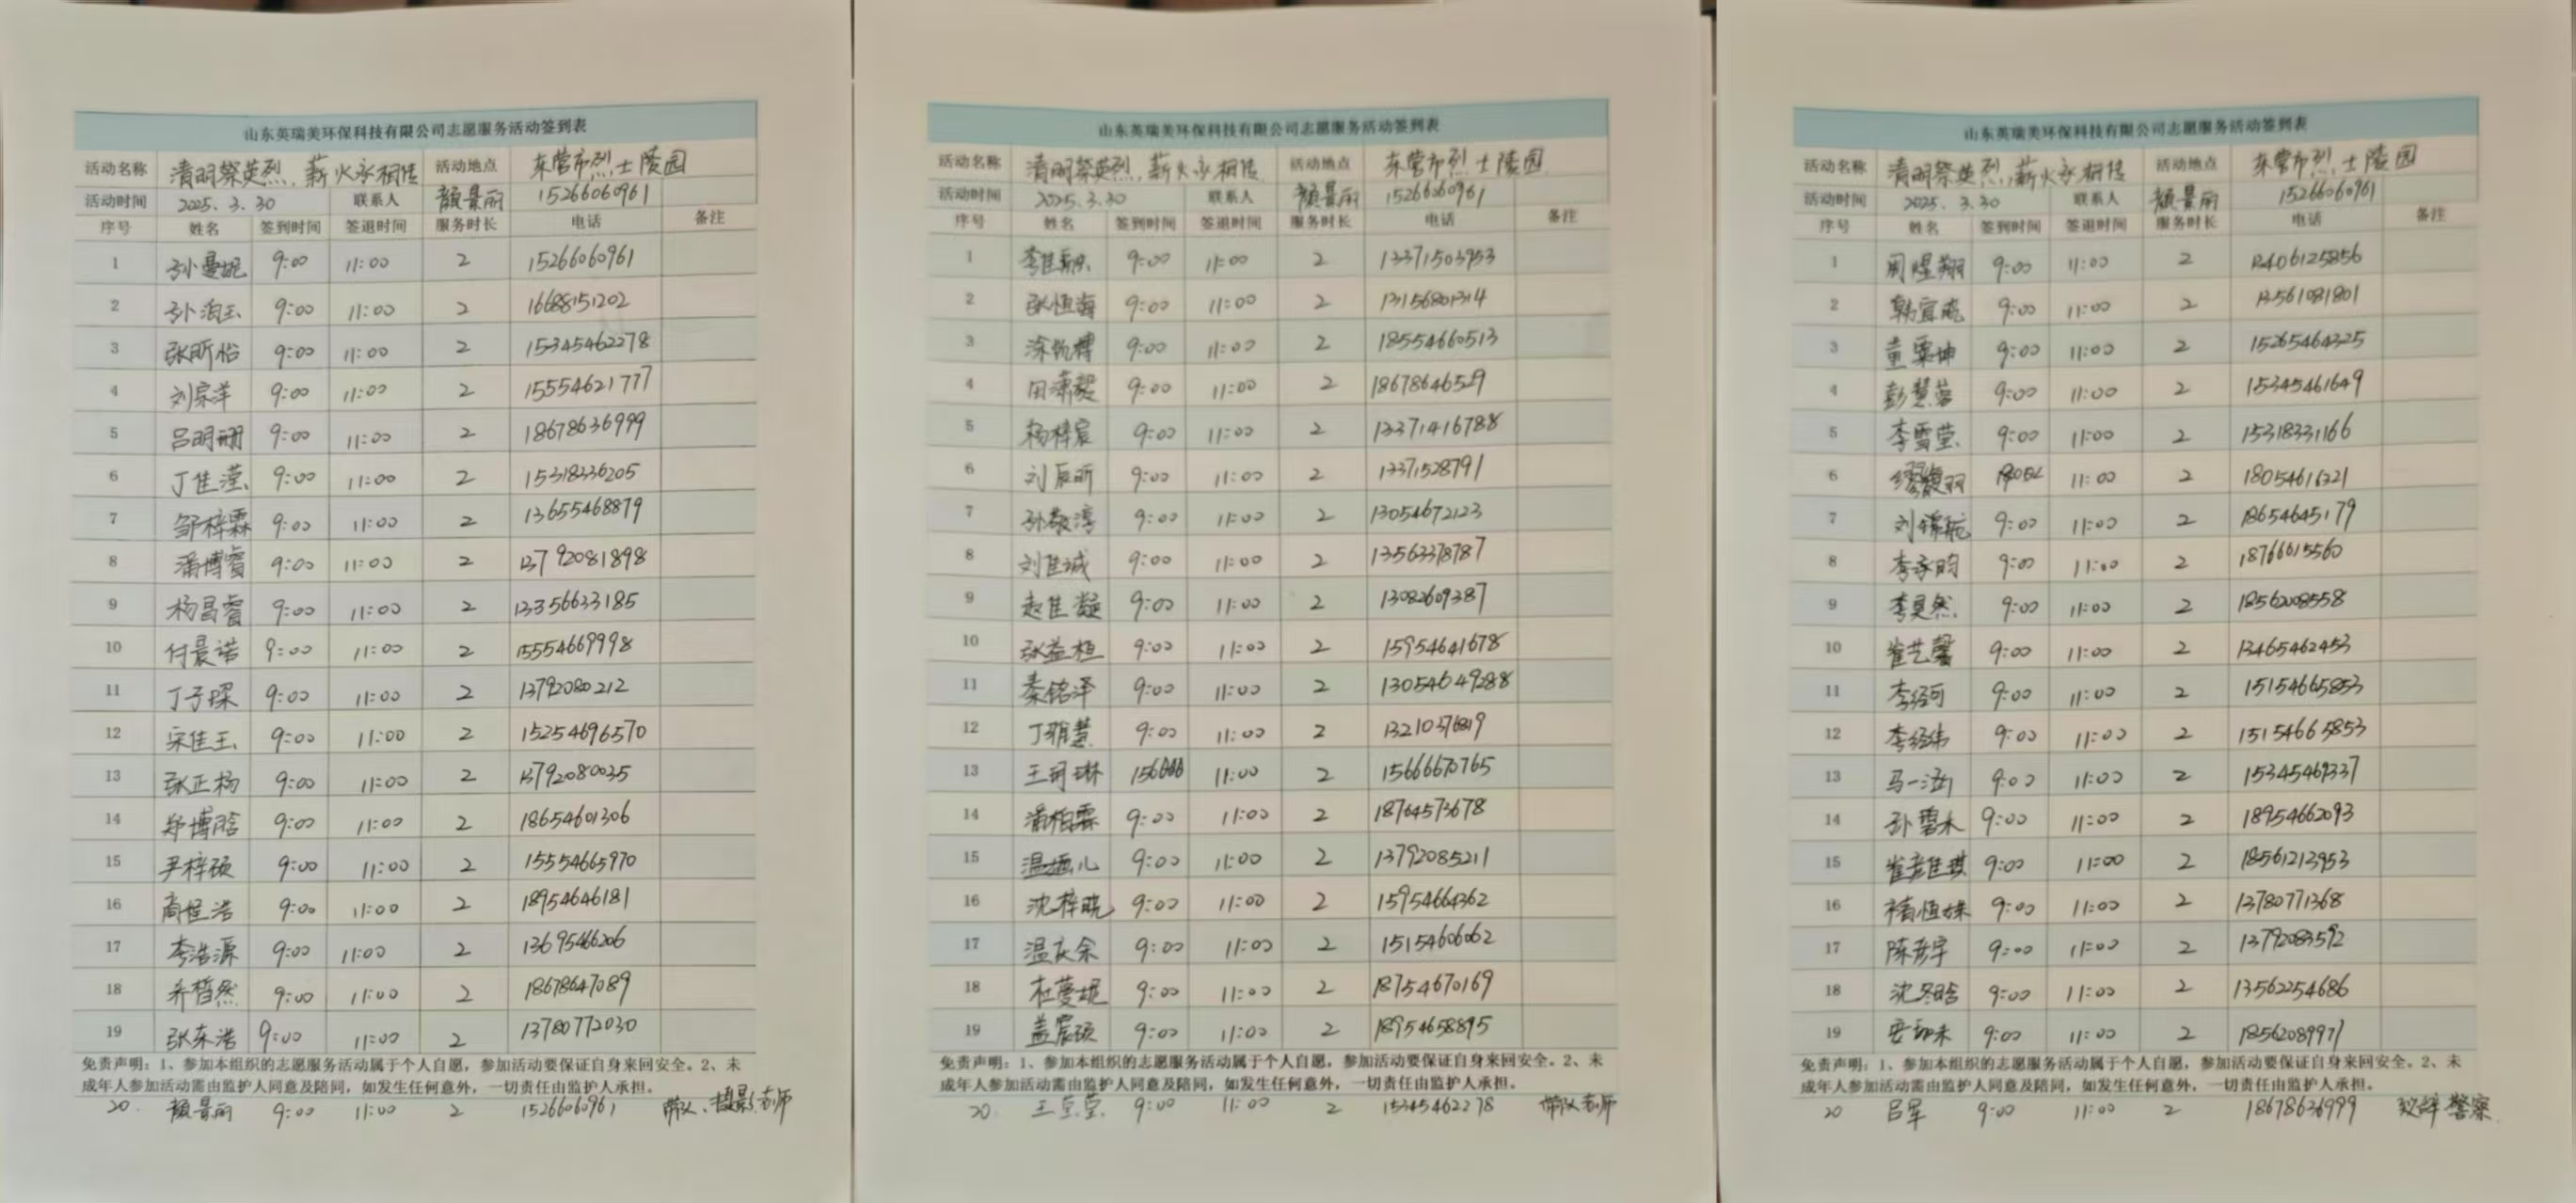 山东英瑞美环保科技有限公司志愿服务活动签到表
活动名称 清明祭英烈，薪火永相传 活动地点 东营市烈士陵园
活动时间 2025.3.30 联系人 颜景丽 15266060961
序号 姓名 签到时间 签退时间 服务时长 电话 备注
1 孙曼妮 9:00 11:00 2 15266060961
2 9:00 11:00 2 16688151202
3 张昕怡 9:00 11:00 2 15345462278
4 刘宗洋 9:00 11:00 2 15554621777
5 吕明珊 9:00 11:00 2 18678636999
6 丁佳滢 9:00 11:00 2 15318336205
7 邹梓霖 9:00 11:00 2 13655468879
8 潘博睿 9:00 11:00 2 13792081898
9 杨昌睿 9:00 11:00 2 13356633185
10 付晨诺 9:00 11:00 2 15554669998
11 丁子琛 9:00 11:00 2 13792080212
12 宋佳玉 9:00 11:00 2 15254696570
13 张正杨 9:00 11:00 2 13792080035
14 郑博晗 9:00 11:00 2 18654601306
15 尹梓硕 9:00 11:00 2 15554665970
16 9:00 11:00 2 18954646181
17 李浩源 9:00 11:00 2 13695466206
18 乔皙然 9:00 11:00 2 18678647089
19 张东浩 9:00 11:00 2 13780772030
免责声明：1、参加本组织的志愿服务活动属于个人自愿，参加活动要保证自身来回安全。2、未
成年人参加活动需由监护人同意及陪同，如发生任何意外，一切责任由监护人承担。
20 颜景丽 9:00 11:00 2 15266060961 带队、摄影老师
山东英瑞美环保科技有限公司志愿服务活动签到表
活动名称 清明祭英烈，薪火永相传 活动地点 东营市烈士陵园
活动时间 2025.3.30 联系人 颜景丽 15266060961
序号 姓名 签到时间 签退时间 服务时长 电话 备注
1 9:00 11:00 2 13371503953
2 张恒海 9:00 11:00 2 13156801314
3 9:00 11:00 2 18554660513
4 9:00 11:00 2 18678646529
5 杨梓宸 9:00 11:00 2 13371416788
6 刘辰昕 9:00 11:00 2 13371528791
7 孙敬淳 9:00 11:00 2 13054672123
8 刘佳诚 9:00 11:00 2 13563378787
9 赵佳凝 9:00 11:00 2 13082609387
10 张益桓 9:00 11:00 2 15954641678
11 秦铭泽 9:00 11:00 2 13054649288
12 丁雅慧 9:00 11:00 2
13 王珂琳 11:00 2 15666670765
14 潘柏霖 9:00 11:00 2 18764573678
15 9:00 11:00 2 13792085211
16 沈梓晓 9:00 11:00 2 15954664362
17 温庆余 9:00 11:00 2 15154606062
18 杜蔓妮 9:00 11:00 2 18754670169
19 盖宸硕 9:00 11:00 2 18954658895
免责声明：1、参加本组织的志愿服务活动属于个人自愿，参加活动要保证自身来回安全。2、未
成年人参加活动需由监护人同意及陪同，如发生任何意外，一切责任由监护人承担。
20 9:00 11:00 2 15345462278 带队老师
山东英瑞美环保科技有限公司志愿服务活动签到表
活动名称 清明祭英烈，薪火永相传 活动地点 东营市烈士陵园
活动时间 2025.3.30 联系人 颜景丽 15266060961
序号 姓名 签到时间 签退时间 服务时长 电话 备注
1 周煜翔 9:00 11:00 2 13406125856
2 9:00 11:00 2 13561081801
3 9:00 11:00 2 15265464325
4 彭慧蓉 9:00 11:00 2 15345461649
5 李雪莹 9:00 11:00 2 15318331166
6 11:00 2 18054616321
7 9:00 11:00 2 18654645179
8 李承昀 9:00 11:00 2 18766615560
9 李昊然 9:00 11:00 2 18562008558
10 崔艺馨 9:00 11:00 2 13465462453
11 李经可 9:00 11:00 2 15154665853
12 李经纬 9:00 11:00 2 15154665853
13 马一涵 9:00 11:00 2 15345469337
14 9:00 11:00 2 18954662093
15 9:00 11:00 2 18561213953
16 9:00 11:00 2 13780771368
17 陈彦宇 9:00 11:00 2 13792083592
18 9:00 11:00 2 13562254686
19 9:00 11:00 2 18562089971
免责声明：1、参加本组织的志愿服务活动属于个人自愿，参加活动要保证自身来回安全。2、未
成年人参加活动需由监护人同意及陪同，如发生任何意外，一切责任由监护人承担。
20 吕军 9:00 11:00 2 18678636999 致辞警察